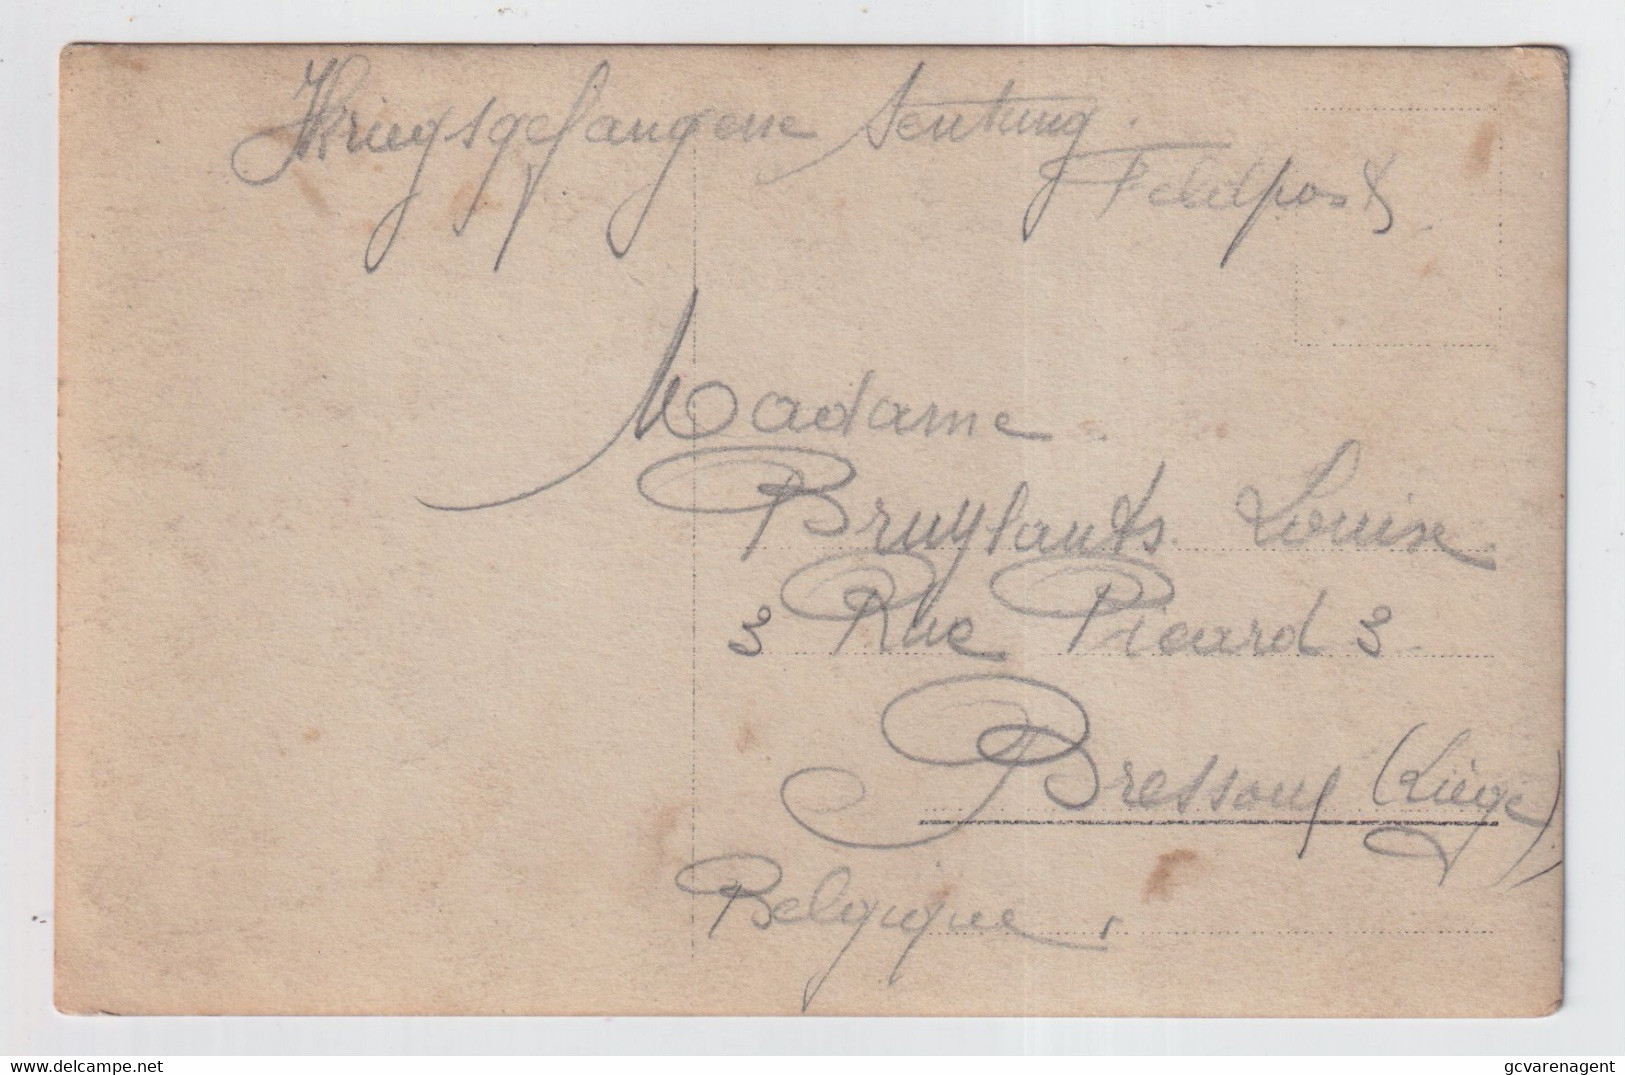 Kriegsgefangene Sentung.
Feldpost
Madame
Bruylants Louise
3 Rue Picard 3
Bressoux (Liège)
Belgique
delcampe.net
gcvarenagent